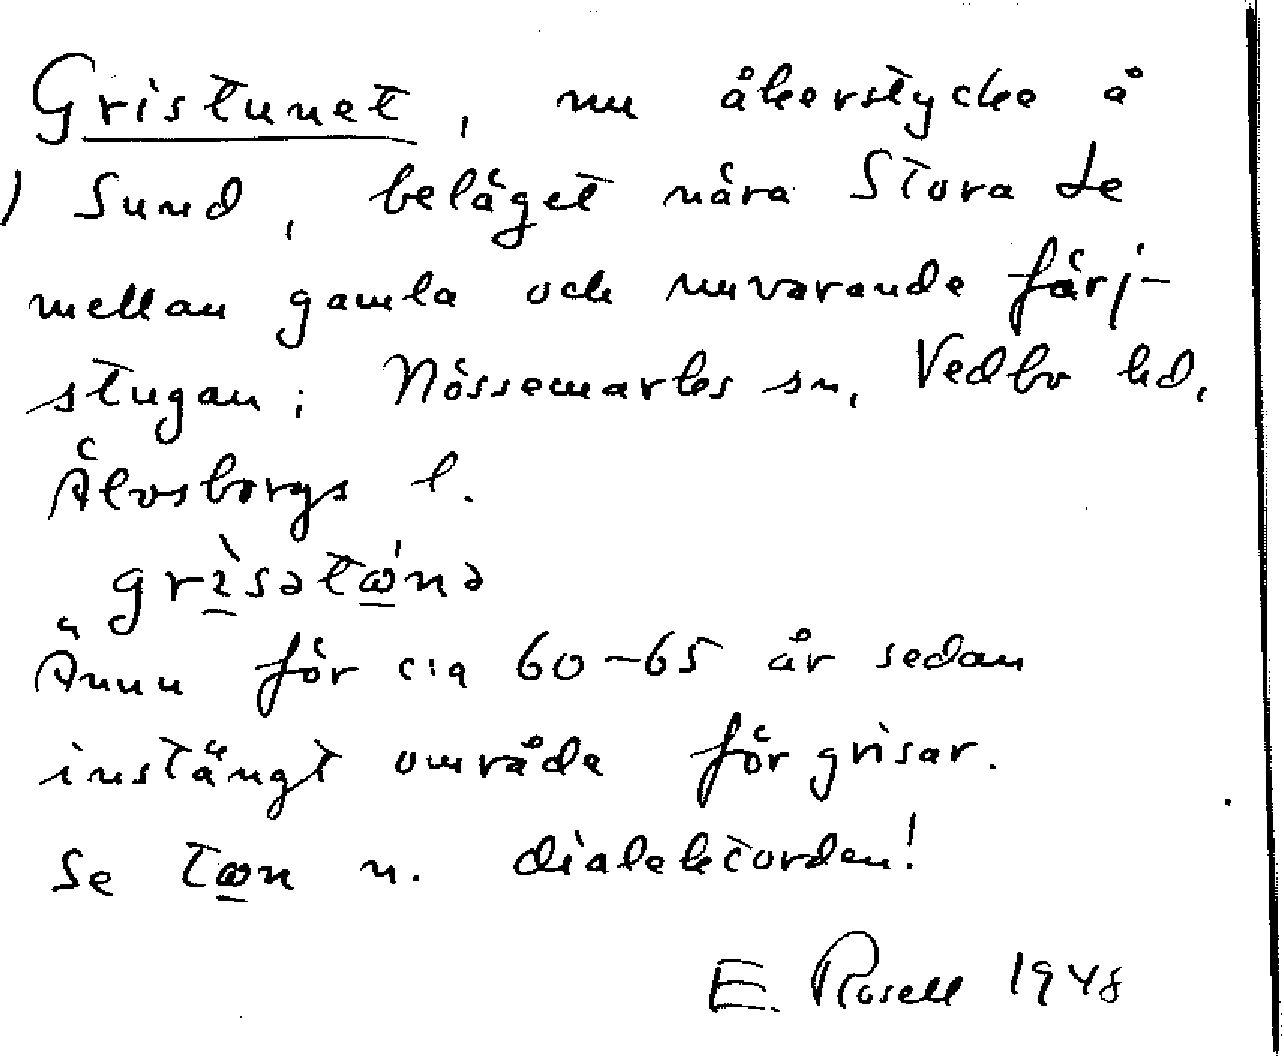 Gristunet, nu åkerstycke å
) Sund, beläget nära Stora Le
mellan gamla och nuvarande färj-
stugan; Nössemarks sn, Vedbo hd,
Älvsborgs l.
grìsətώ̲nə
Ännu för c:a 60-65 år sedan
instängt område för grisar.
Se tω̲n n. dialektorden!
E. Rosell 1948